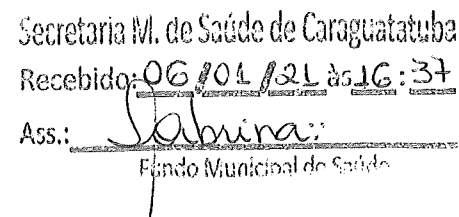 Secretaria M. de Saúde de Caraguatatuba
Recebido: 06/01/21 às 16:37
Ass.: Sabrina
Fundo Municipal de Saúde